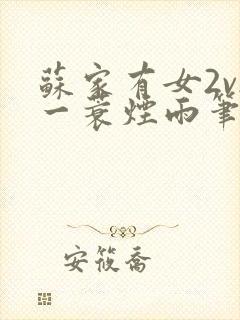 蘇家有女2v
一蓑煙雨筆
安筱喬